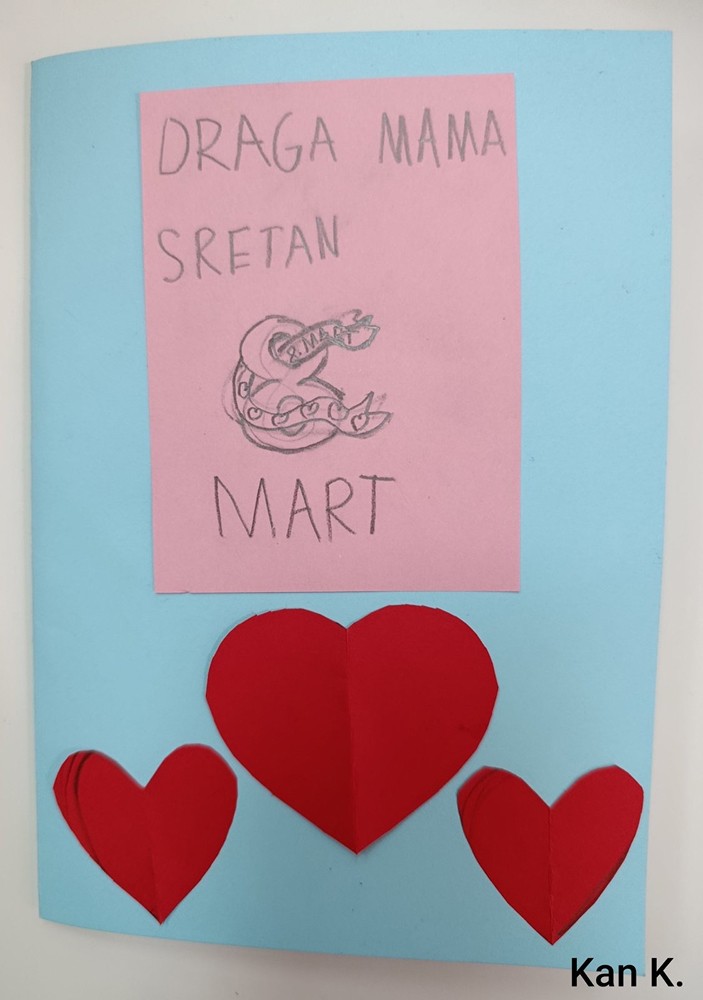 DRAGA MAMA
SRETAN
8. MART
8
MART
Kan K.